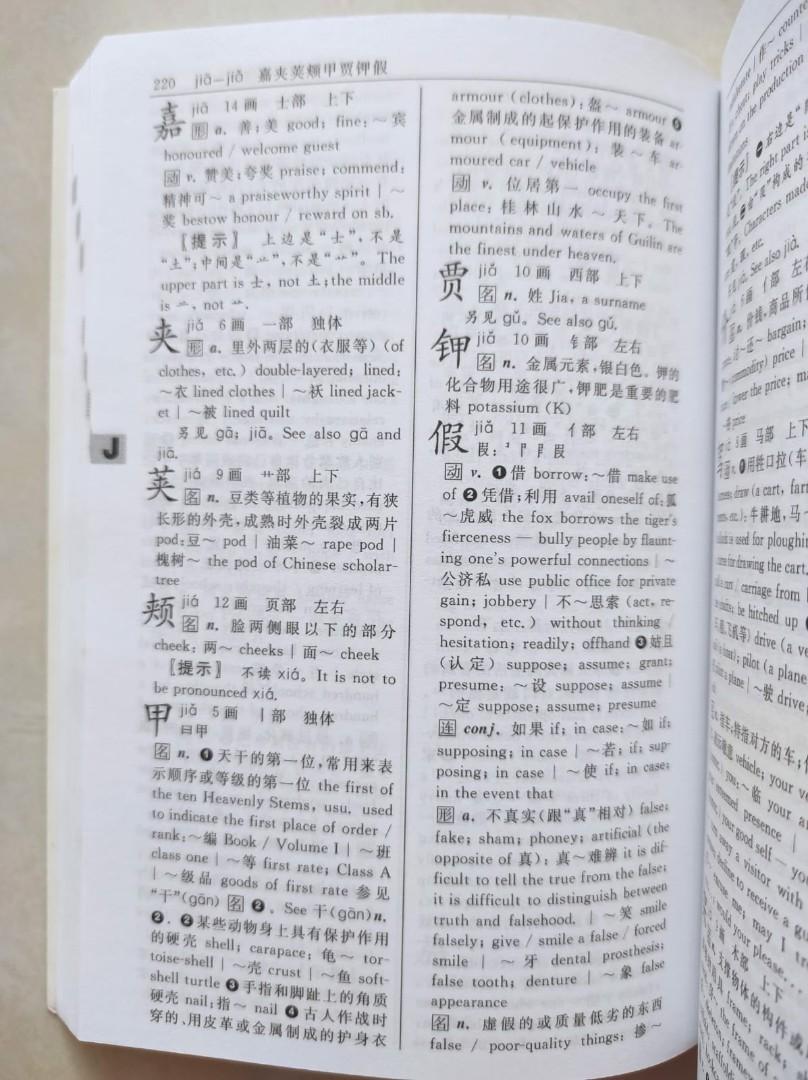 220 jiā—jiǎ 嘉夹荚颊甲贾钾假
嘉 jiā 14画 士部 上下
形 a. 善;美 good; fine: ～宾
honoured / welcome guest
动 v. 赞美;夸奖 praise; commend:
精神可～ a praiseworthy spirit | ～
奖 bestow honour / reward on sb.
【提示】 上边是“士”,不是
“土”;中间是“䒑”,不是“艹”。The
upper part is 士, not 土; the middle
is 䒑, not 艹.
夹 jiá 6画 一部 独体
形 a. 里外两层的(衣服等) (of
clothes, etc.) double-layered; lined:
～衣 lined clothes | ～袄 lined jack-
et | ～被 lined quilt
另见 gā; jiā。See also gā and
jiā.
荚 jiá 9画 艹部 上下
名 n. 豆类等植物的果实,有狭
长形的外壳,成熟时外壳裂成两片
pod:豆～ pod | 油菜～ rape pod |
槐树～ the pod of Chinese scholar-
tree
颊 jiá 12画 页部 左右
名 n. 脸两侧眼以下的部分
cheek: 两～ cheeks | 面～ cheek
【提示】 不读 xiá。It is not to
be pronounced xiá.
甲 jiǎ 5画 丨部 独体
曰甲
名 n. ❶天干的第一位,常用来表
示顺序或等级的第一位 the first of
the ten Heavenly Stems, usu. used
to indicate the first place of order /
rank:～编 Book / Volume I | ～班
class one | ～等 first rate; Class A
| ～级品 goods of first rate 参见
“干”(gān) 名 ❷。See 干(gān)n.
❷. ❷某些动物身上具有保护作用
的硬壳 shell; carapace: 龟～ tor-
toise-shell | ～壳 crust | ～鱼 soft-
shell turtle ❸手指和脚趾上的角质
硬壳 nail; 指～ nail ❹古人作战时
穿的、用皮革或金属制成的护身衣
armour (clothes); 盔～ armour ❺
金属制成的起保护作用的装备 ar-
mour (equipment): 装～车 ar-
moured car / vehicle
动 v. 位居第一 occupy the first
place: 桂林山水～天下。The
mountains and waters of Guilin are
the finest under heaven.
贾 jiǎ 10画 西部 上下
名 n. 姓 Jia, a surname
另见 gǔ。See also gǔ.
钾 jiǎ 10画 钅部 左右
名 n. 金属元素,银白色。钾的
化合物用途很广,钾肥是重要的肥
料 potassium (K)
假 jiǎ 11画 亻部 左右
叚:
动 v. ❶借 borrow:～借 make use
of ❷凭借;利用 avail oneself of:狐
～虎威 the fox borrows the tiger's
fierceness — bully people by flaunt-
ing one's powerful connections | ～
公济私 use public office for private
gain; jobbery | 不～思索 (act, re-
spond, etc.) without thinking /
hesitation; readily; offhand ❸姑且
(认定) suppose; assume; grant;
presume: ～设 suppose; assume |
～定 suppose; assume; presume
连 conj. 如果 if; in case:～如 if;
supposing; in case | ～若; if; sup-
posing; in case | ～使 if; in case;
in the event that
形 a. 不真实(跟“真”相对) false;
fake; sham; phoney; artificial (the
opposite of 真): 真～难辨 it is dif-
ficult to tell the true from the false;
it is difficult to distinguish between
truth and falsehood. | ～笑 smile
falsely; give / smile a false / forced
smile | ～牙 dental prosthesis;
false tooth; denture | ～象 false
appearance
名 n. 虚假的或质量低劣的东西
false / poor-quality things: 掺～
J